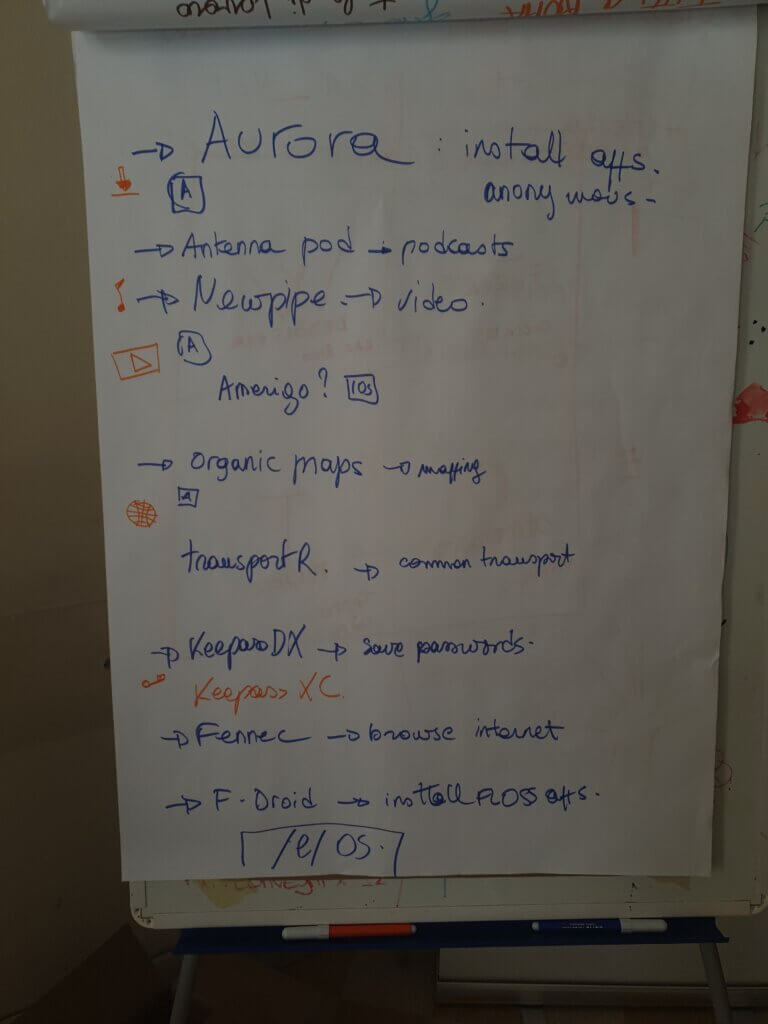 → Aurora : install apps.
A anonymous -
→ Antenna pod → podcasts
→ Newpipe → video.
A
Amerigo? IOS
→ organic maps → mapping
A
transportR. → common transport
→ KeepassDX → save passwords.
Keepass XC.
→ Fennec → browse internet
→ F-Droid → install FLOSS apps.
/e/ OS.